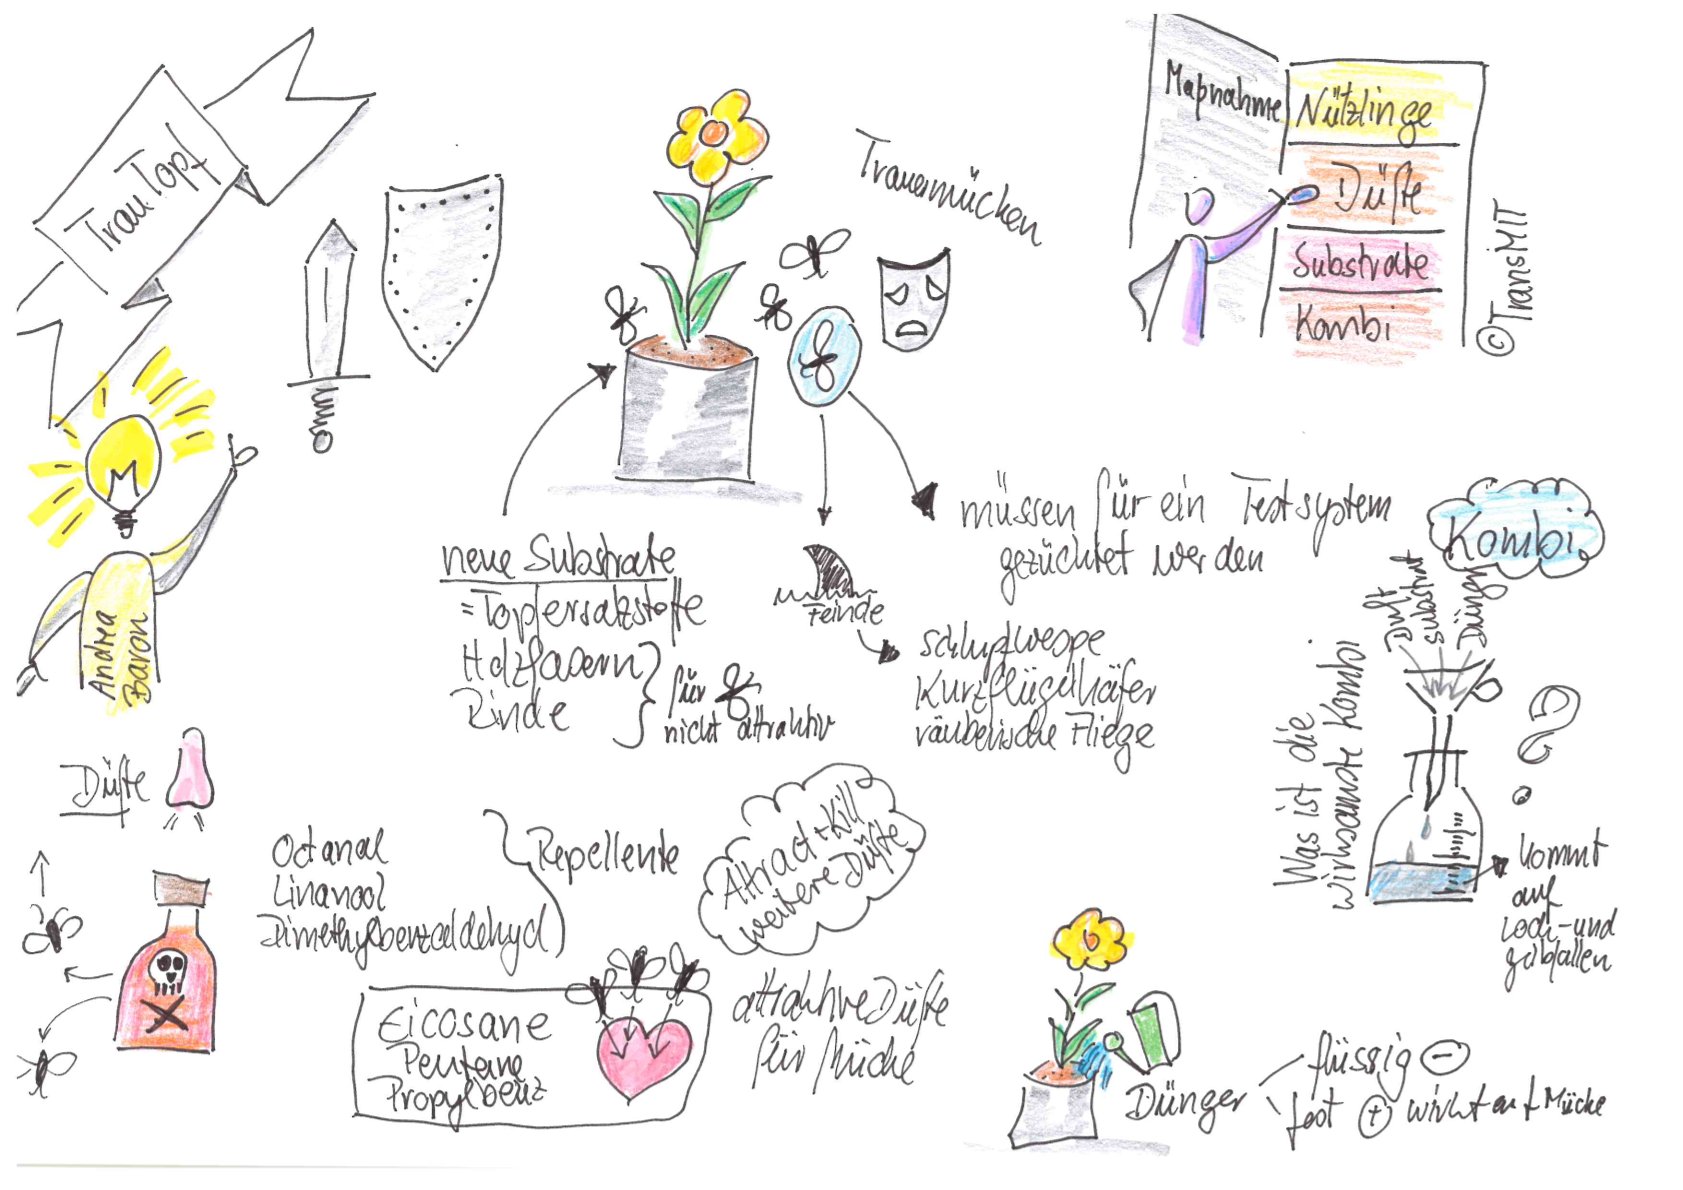 TrauTopf
Andrea
Baron
Trauermücken
Maßnahme
Nützlinge
Düfte
Substrate
Kombi
©TransMIT
neue Substrate
= Topfersatzstoffe
Holzfasern
Rinde
für
nicht attraktiv
Feinde
müssen für ein Testsystem
gezüchtet werden
Schlupfwespe
Kurzflügelkäfer
räuberische Fliege
Kombi
Duft
Substrat
Dünger
Was ist die
wirksamste Kombi
?
kommt
auf
Lock- und
gelbfallen
Düfte
Octanal
Linanool
Dimethylbenzaldehyd
Repellente
Attract + Kill
weitere Düfte
Eicosane
Pentane
Propylbenz
attraktive Düfte
für Mücke
Dünger
flüssig -
fest + wirkt auf Mücke